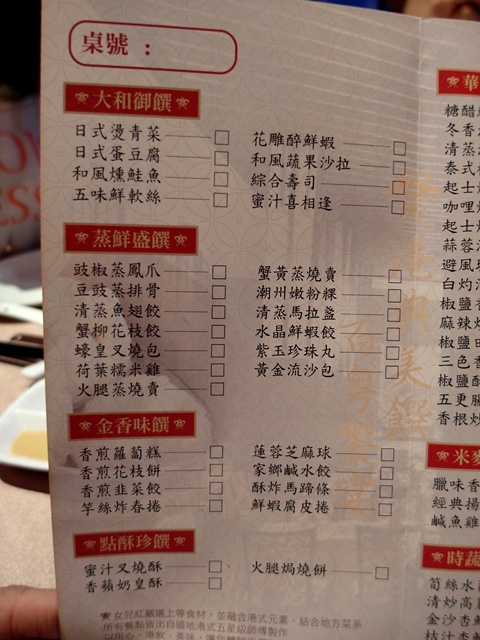 桌號：
大和御饌
日式燙青菜
日式蛋豆腐
和風燻鮭魚
五味鮮軟絲
花雕醉鮮蝦
和風蔬果沙拉
綜合壽司
蜜汁喜相逢
蒸鮮盛饌
豉椒蒸鳳爪
豆豉蒸排骨
清蒸魚翅餃
蟹柳花枝餃
蠔皇叉燒包
荷葉糯米雞
火腿蒸燒賣
蟹黃蒸燒賣
潮州嫩粉粿
清蒸馬拉盞
水晶鮮蝦餃
紫玉珍珠丸
黃金流沙包
金香味饌
香煎蘿蔔糕
香煎花枝餅
香煎韭菜餃
竿絲炸春捲
蓮蓉芝麻球
家鄉鹹水餃
酥炸馬蹄條
鮮蝦腐皮捲
點酥珍饌
蜜汁叉燒酥
香蘋奶皇酥
火腿焗燒餅
女兒紅嚴選上等食材，並融合港式元素，結合地方菜系
所有餐點皆出自道地港式五星級師傅製作
華
糖醋
冬香
清蒸
泰式
起士
咖哩
起士
蒜蓉
避風
白灼
椒鹽
麻辣
椒鹽
三色
椒鹽
五更
香根炒
米麥
臘味香
經典揚
鹹魚雞
時蔬
筍絲水
清炒高
金沙杏